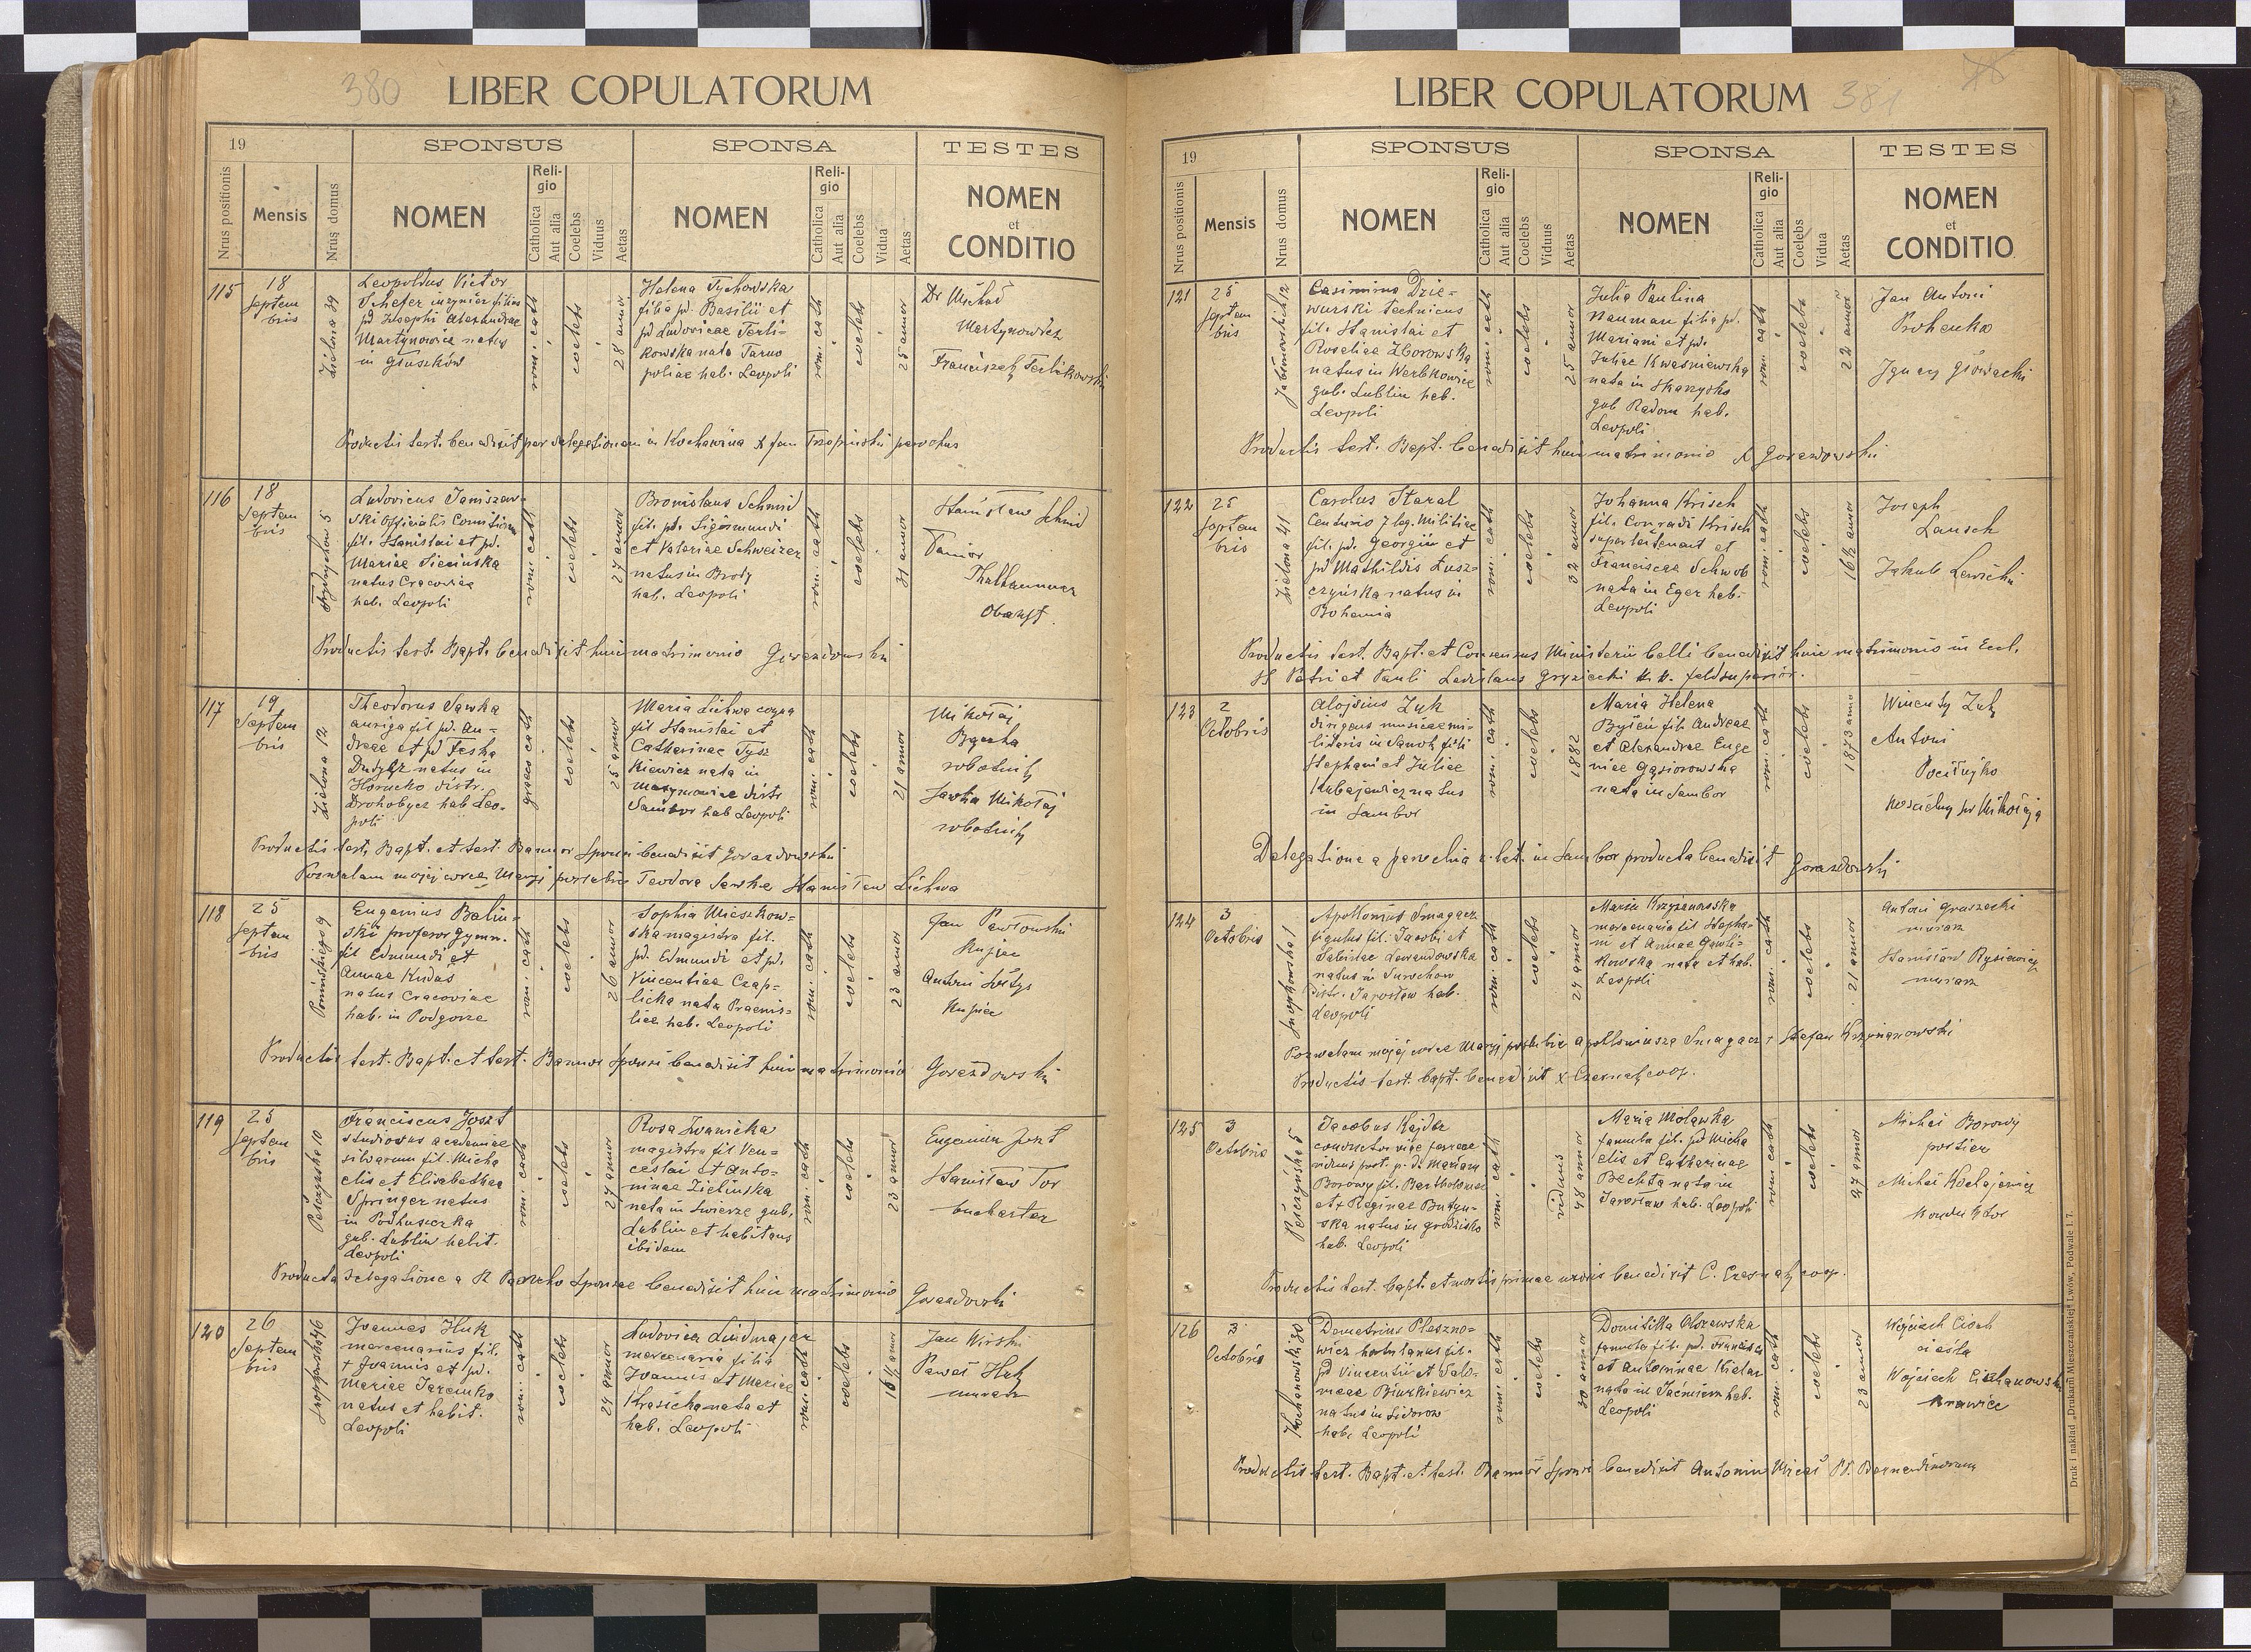 380
LIBER COPULATORUM
19
SPONSUS
SPONSA
TESTES
Nrus positionis
Mensis
Nrus domus
NOMEN
Religio
Catholica
Aut alia
Coelebs
Viduus
Aetas
NOMEN
Religio
Catholica
Aut alia
Coelebs
Vidua
Aetas
NOMEN
et
CONDITIO
115
18
Septem
bris
Zielona 39
Leopoldus Victor
Schefer inzynier filius
pd Josephi Alexandrae
Martynowicz natus
in Głuszków
rom. cath
coelebs
28 annor
Helena Tychowska
filia pd. Basilii et
pd Ludovicae Terli-
kowska nata Tarno
poliae hab. Leopoli
rom. cath
coelebs
25 annor
Dr Michał
Martynowicz
Franciszek Terlikowski
Productis test. benedixit per delegationem in Kochawina X Jan Trzopiński parochus
116
18
Septem
bris
Fredrychów 5
Ludovicus Janiszew-
ski officialis
fil. Stanislai et pd.
Mariae Siecińska
natus Cracoviae
hab. Leopoli
rom. cath
coelebs
27 annor
Bronislaus Schmid
fil. pd. Sigismundi
et Valeriae Schweizer
natus in Brody
hab. Leopoli
rom. cath
coelebs
31 annor
Stanisław Schmid
Productis test. Bapt. benedixit huic matrimonio Gorazdowski
117
19
Septem
bris
Zielona 12
Theodorus Sawka
auriga fil pd. An-
dreae et pd Feska
natus in
Horucko distr.
Drohobycz hab Leo-
poli
graeco cath
coelebs
25 annor
Maria Lichwa
fil Stanislai et
Catharinae Tysz
kiewicz nata in
distr
Sambor hab Leopoli
rom. cath
coelebs
21 annor
Mikołaj
robotnik
Sawka Mikołaj
robotnik
Productis test. Bapt. et test. Bannor Sponsi benedixit Gorazdowski
Pozwalam mojej córce Maryi poślubić Teodora Sawka Stanisław Lichwa
118
25
Septem
bris
Ponińskiego 9
Eugenius Balin-
ski profesor gymn.
fil Edmundi et
Annae Kudas
natus Cracoviae
hab. in Podgorze
rom. cath
coelebs
26 annor
Sophia Mieszkow-
ska magistra fil.
pd. Edmundi et pd.
Vincentiae Czap-
licka nata Praemis-
liae hab. Leopoli
rom. cath
coelebs
23 annor
Jan Pawłowski
Kupiec
Antoni
Kupiec
Productis test. Bapt. et test. Bannor Sponsi benedixit huic matrimonio Gorazdowski
119
25
Septem
bris
Pełczyńska 10
Franciscus Joszt
studiosus academiae
silvarum fil. Micha
elis et Elisabethae
Springer natus
in
gub. Lublin habit.
Leopoli
rom. cath
coelebs
24 annor
Rosa Iwanicka
magistra fil Ven-
ceslai et Anto-
ninae Zielinska
nata in Swierze gub.
Lublin et habitans
ibidem
rom. cath
coelebs
23 annor
Eugeniusz Joszt
Stanisław Tor
buchalter
Producta delegatione a R Parocho Sponsae benedixit huic matrimonio Gorazdowski
120
26
Septem
bris
Joannes Huk
mercenarius fil.
+ Joannis et pd.
Mariae Jaremko
natus et habit.
Leopoli
rom. cath
coelebs
24 annor
Ludovica Lindmajer
mercenaria filia
Joannis et Mariae
Krasicka nata et
hab. Leopoli
rom. cath
coelebs
16½ annor
Jan Wirski
Paweł Huk
murarz
LIBER COPULATORUM
381
19
SPONSUS
SPONSA
TESTES
Nrus positionis
Mensis
Nrus domus
NOMEN
Religio
Catholica
Aut alia
Coelebs
Viduus
Aetas
NOMEN
Religio
Catholica
Aut alia
Coelebs
Vidua
Aetas
NOMEN
et
CONDITIO
121
25
Septem
bris
Jabłonowskich 12
Casimirus Dzie-
wurski technicus
fil. Stanislai et
Roseliae Zborowska
natus in Werbkowice
gub. Lublin hab.
Leopoli
rom. cath
coelebs
25 annor
Julia Paulina
Nauman filia pd.
Mariani et pd.
Juliae Kwaśniewska
nata in Skarzysko
gub Radom hab.
Leopoli
rom. cath
coelebs
22 annor
Jan Antoni
Ignacy Głowacki
Productis test. Bapt. benedixit huic matrimonio X Gorazdowski
122
25
Septem
bris
Zielona 41
Carolus Staral
Centurio 7 leg. Militiae
fil. pd. Georgii et
pd Mathildis Łusz-
czyńska natus in
Bohemia
rom. cath
coelebs
32 annor
Johanna Krisch
fil. Conradi Krisch
et
Franciscae Schwob
nata in Eger hab.
Leopoli
rom. cath
coelebs
16½ annor
Joseph
Lausch
Jakub Lewicki
Productis test. Bapt. et Consensus Ministerii belli benedixit huic matrimonio in Eccl.
SS Petri et Pauli Ladislaus Gryziecki k. k. feldsuperior.
123
2
Octobris
Alojsius Żuk
dirigens musicae mi-
litaris in Sanok fili
Stephani et Juliae
Kubajewicz natus
in Sambor
rom. cath
coelebs
1882
Maria Helena
fil. Andreae
et Alexandrae Euge
niae Gąsiorowska
nata in Sambor
rom. cath
coelebs
1873 anno
Wincenty Żuk
Antoni
Delegatione a parochia r. lat. in Sambor producta benedixit Gorazdowski
124
3
Octobris
Apollonius Smagacz
figulus fil. Jacobi et
Salesiae Lewandowska
natus in Surochow
distr. Jarosław hab.
Leopoli
rom. cath
coelebs
24 annor
Maria Krzyżanowska
mercenaria fil Stepha-
ni et Annae Gawli-
kowska nata et hab.
Leopoli
rom. cath
coelebs
21 annor
Antoni Gruszecki
murarz
Stanisław Rysiewicz
murarz
Pozwalam mojej córce Maryi poślubić Apolloniusza Smagacz Stefan Krzyżanowski
Productis test. bapt. benedixit X Czesnak coop.
125
3
Octobris
Pełczyńska 5
Jacobus Kajder
conductor viae ferreae
viduus post. p. d. Mariam
Borowy fil. Bartholomei
et Reginae
natus in Grodzisko
hab. Leopoli
rom. cath
viduus
48 annor
Maria Moławka
famula fil. pd Micha
elis et Catharinae
Bechta nata in
Jarosław hab. Leopoli
rom. cath
coelebs
27 annor
Michał Borowy
portier
Michał
konduktor
Productis test. bapt. et mortis primae uxoris benedixit C. Czesnak coop.
126
3
Octobris
Kochanowski 30
Demetrius Pleszno-
wicz hortulanus fil.
pd Vincentii et Salo-
meae Biurkiewicz
natus in Sidorow
hab. Leopoli
rom. cath
coelebs
30 annor
Domitilla Olszewska
famula fil. pd. Francisci
et Antoninae Kielar
nata in Jaćmierz hab.
Leopoli
rom. cath
coelebs
23 annor
Wojciech Cioch
cieśla
Wojciech Ciechanowski
krawiec
Productis test. Bapt. et test. Bannor Sponsi benedixit Antonin Micał PP. Bernardinorum
Druk i nakład „Drukarni Mieszczańskiej” Lwów, Podwale l. 7.